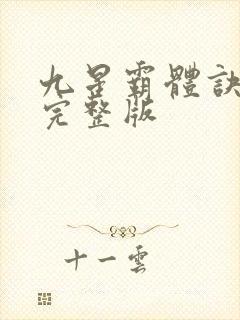 九星霸體訣
完整版
十一雲